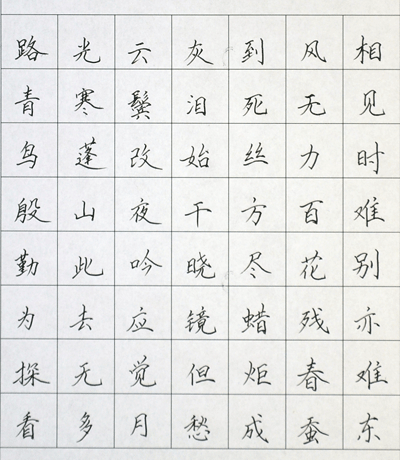 相见时难别亦难东
风无力百花残春蚕
到死丝方尽蜡炬成
灰泪始干晓镜但愁
云鬓改夜吟应觉月
光寒蓬山此去无多
路青鸟殷勤为探看